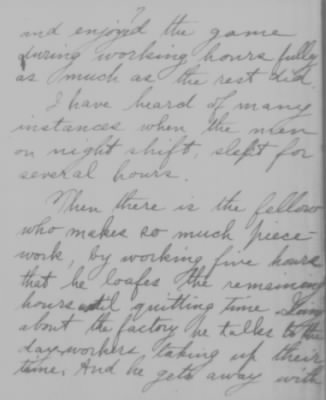 7
and enjoyed the game
during working hours fully
as much as the rest did.
I have heard of many
instances when the men
on night shift, slept for
several hours.
Then there is the fellow
who makes so much piece-
work, by working five hours
that he loafes the remaining
hours until quitting time
about the factory he talks to the
day-workers taking up their
time. And he gets away with